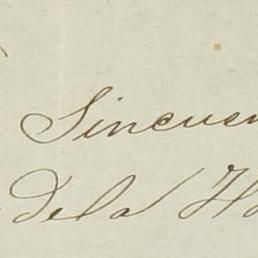 Sincuen
de la Ha